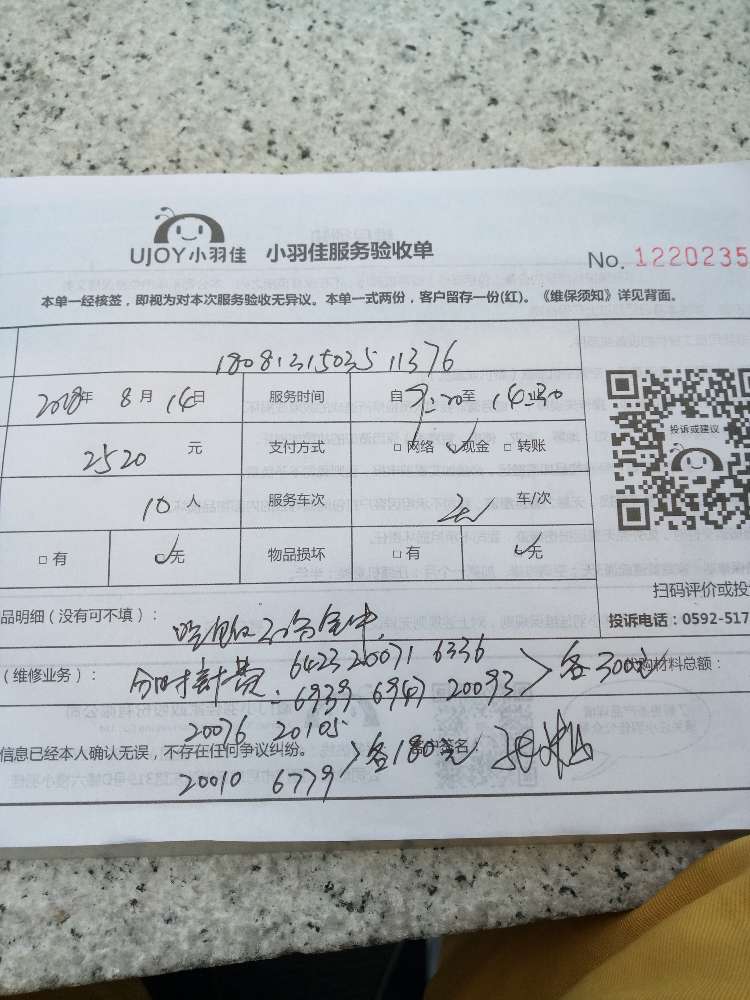 UJOY小羽佳 小羽佳服务验收单
No. 1220235
本单一经核签，即视为对本次服务验收无异议。本单一式两份，客户留存一份(红)。《维保须知》详见背面。
18081315035 11376
2018年 8月 14日 服务时间 自 至
投诉或建议
2520 元 支付方式 □ 网络 现金 □ 转账
10 人 服务车次 2 车/次
□ 有 无 物品损坏 □ 有 无
扫码评价或投
品明细（没有可不填）：
投诉电话：0592-517
（维修业务）： 分时计费 6423 20071 6336 各300元 购材料总额：
6939 6947 20093
20076 20105 各180元
信息已经本人确认无误，不存在任何争议纠纷。 客户签名：
20010 6779